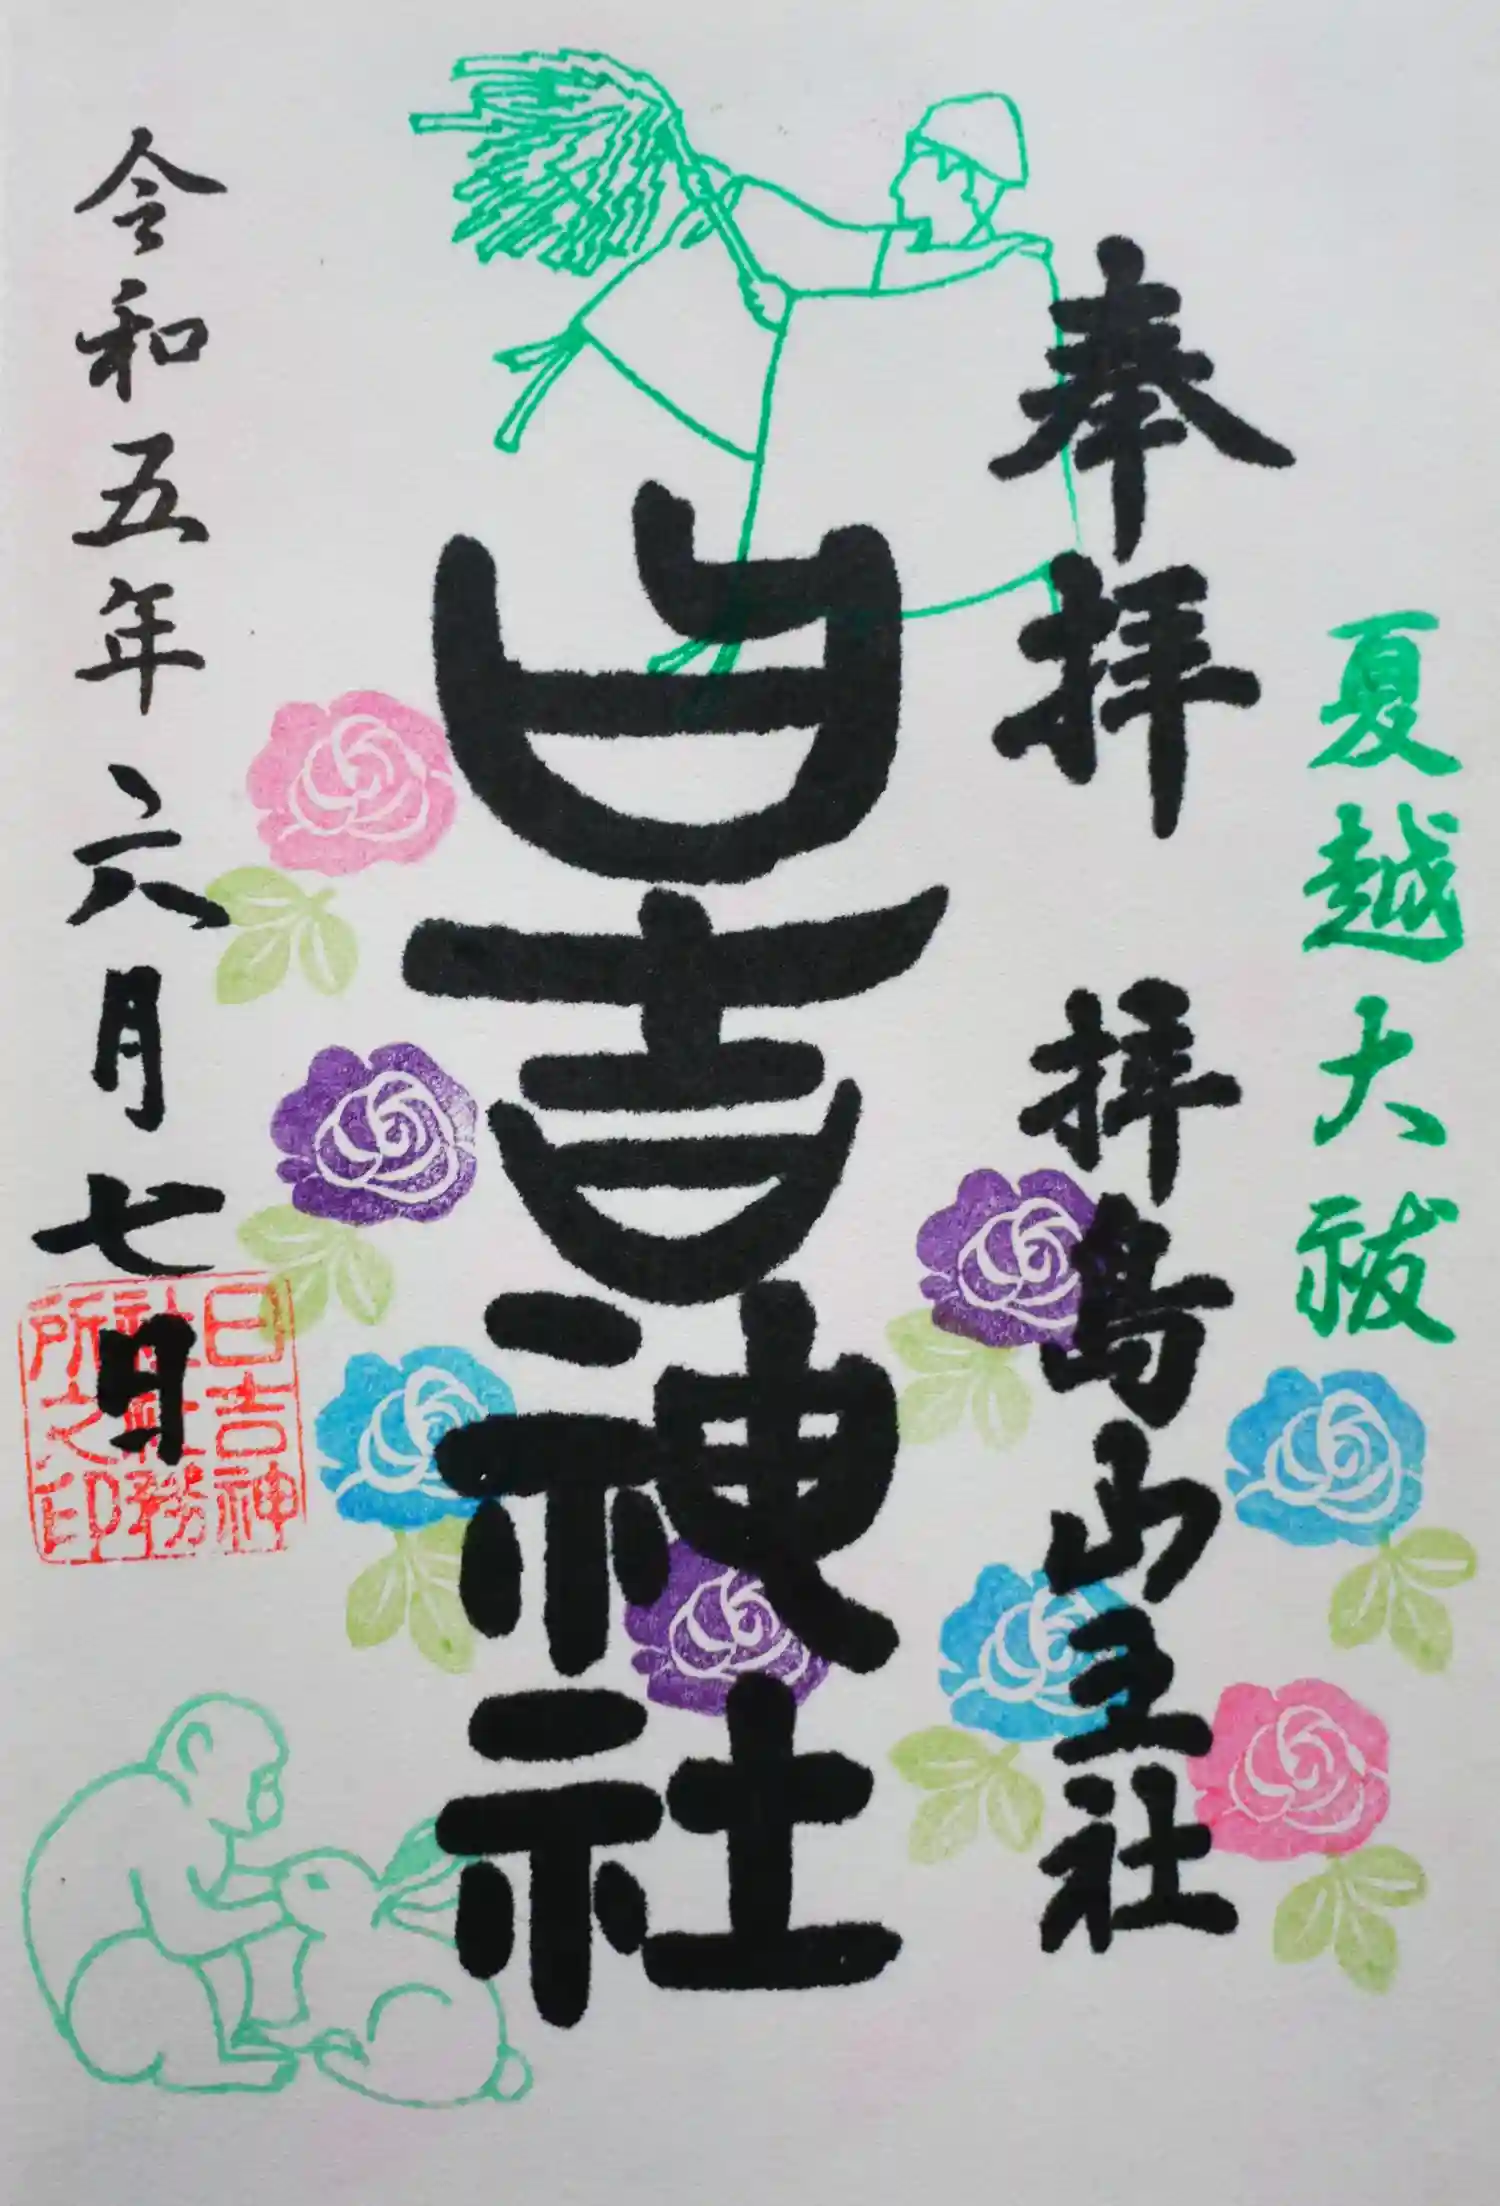 夏越大祓
奉拝 拝島山王社
日吉神社
令和五年六月七日
日吉神
社社務
所之印